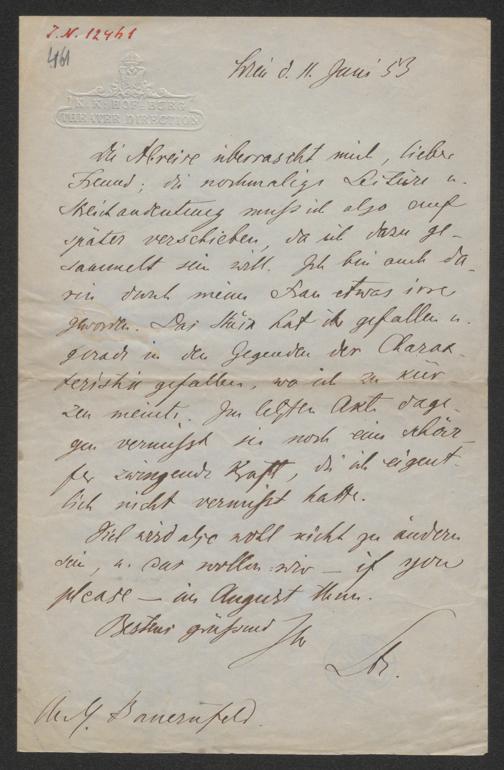 I.N. 12461
461
K.K. HOF-BURG
THEATER DIRECTION
Wien d. 11. Juni 53
Die Abreise überrascht mich, lieber
Freund; die nochmalige Lektüre u.
Strichandeutung muß ich also auf
später verschieben, da ich dazu ge-
sammelt sein will. Ich bin auch da-
rin durch meine Frau etwas irre
geworden. Das Stück hat ihr gefallen u.
gerade in den Gegenden der Charak-
teristik gefallen, wo ich zu kür-
zen meinte. Im letzten Akte dage-
gen vermißt sie noch eine schär-
fer zwingende Kraft, die ich eigent-
lich nicht vermißt hatte.
Viel wird also wohl nicht zu ändern
sein, u. das wollen wir – if you
please – im August thun.
Bestens grüßend Ihr
Lbe.
Bauernfeld.